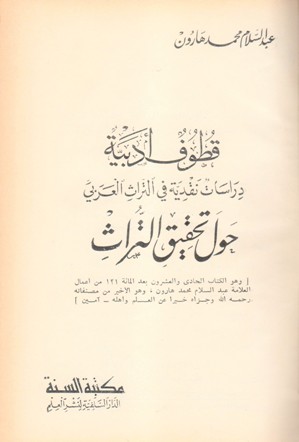 عبد السلام محمد هارون
قطوف أدبية
دراسات نقدية في التراث العربي
حول تحقيق التراث
[ وهو الكتاب الحادى والعشرون بعد المائة ١٢١ من أعمال
العلامة عبد السلام محمد هارون ، وهو الأخير من مصنفاته
رحمه الله وجزاه خيرا عن العلم وأهله - آمين ]
مكتبة السنة
الدار السلفية لنشر العلم